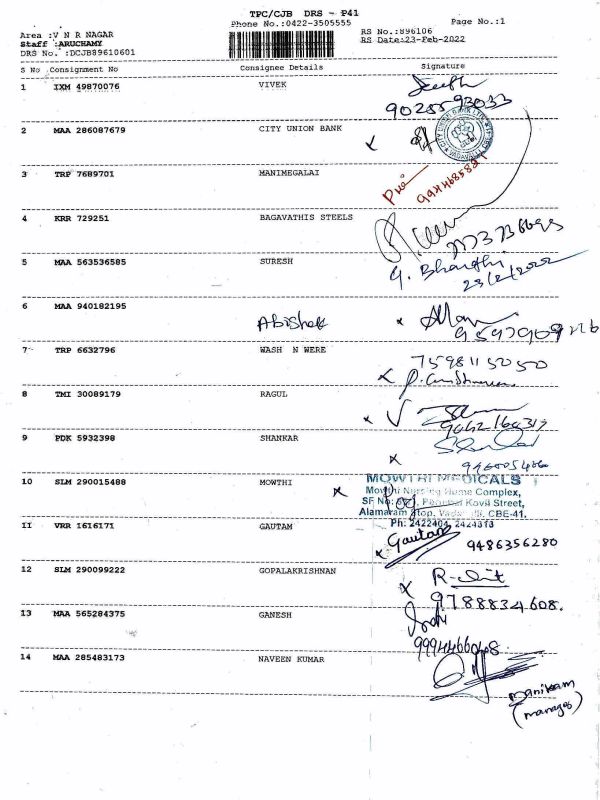 TPC/CJB DRS - P41
Phone No.:0422-3505555
Page No.:1
Area :V N R NAGAR
RS No.:896106
Staff :ARUCHAMY
RS Date:23-Feb-2022
DRS No. :DCJB89610601
S No Consignment No Consignee Details Signature
1 IXM 49870076 VIVEK
9025593033
2 MAA 286087679 CITY UNION BANK
3 TRP 7689701 MANIMEGALAI
4 KRR 729251 BAGAVATHIS STEELS
5 MAA 563536585 SURESH
G. Bharathi
23/2/2022
6 MAA 940182195 Abishek
7 TRP 6632796 WASH N WERE
7598115050
8 TMI 30089179 RAGUL
9 PDK 5932398 SHANKAR
10 SLM 290015488 MOWTHI
MOWTHI MEDICALS
Mowthi Nursing Home Complex,
Kovil Street,
Alamaram Stop, CBE-41.
Ph: 2422404, 2424313
11 VRR 1616171 GAUTAM
Gautam 9486356280
12 SLM 290099222 GOPALAKRISHNAN
9788834608.
13 MAA 565284375 GANESH
14 MAA 285483173 NAVEEN KUMAR
Manikam
(manager)